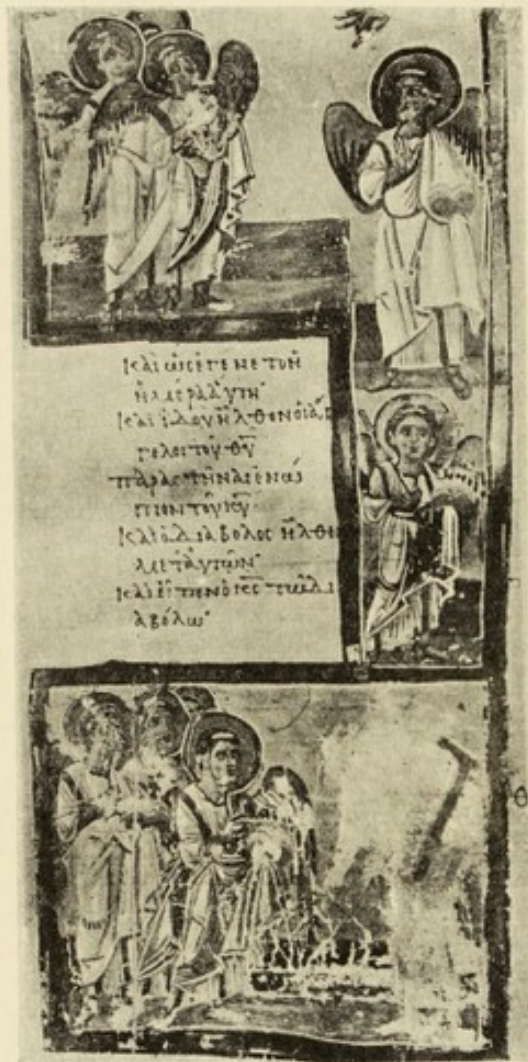 Καὶ ὡς ἐγένετο ἡ
ἡμέρα αὕτη
καὶ ἰδοὺ ἦλθον οἱ ἄγ
γελοι τοῦ θυ
παραστῆναι ἐνώ
πιον τοῦ κυ
Καὶ ὁ διάβολος ἦλθεν
μετ᾽ αὐτῶν
Καὶ εἶπεν ὁ κς τῷ δι
αβόλῳ